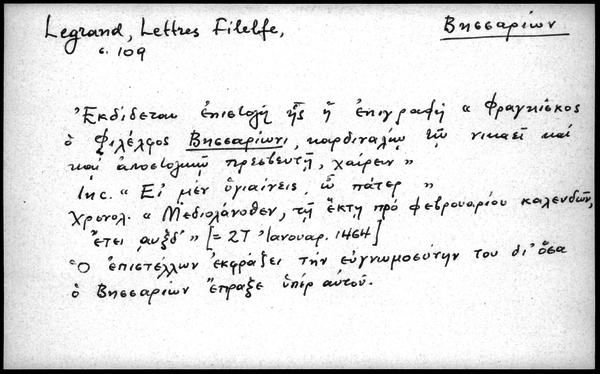 Legrand, Lettres Filelfe,
Βησσαρίων
σ. 109
Ἐκδίδεται ἐπιστολὴ ἧς ἡ ἐπιγραφὴ « Φραγκίσκος
ὁ Φιλέλφος Βησσαρίωνι, καρδιναλίῳ τῷ νικαεῖ καὶ
καὶ ἀποστολικῷ πρεσβευτῇ, χαίρειν »
Inc. « Εἰ μὲν ὑγιαίνεις, ὦ πάτερ »
Χρονολ. « Μεδιολάνοθεν, τῇ ἕκτῃ πρό φεβρουαρίου καλενδῶν,
ἔτει ͵αυξδʹ » [= 27 Ἰανουαρ. 1464]
Ὁ ἐπιστέλλων ἐκφράζει τὴν εὐγνωμοσύνην του δι᾽ ὅσα
ὁ Βησσαρίων ἔπραξε ὑπὲρ αὐτοῦ.